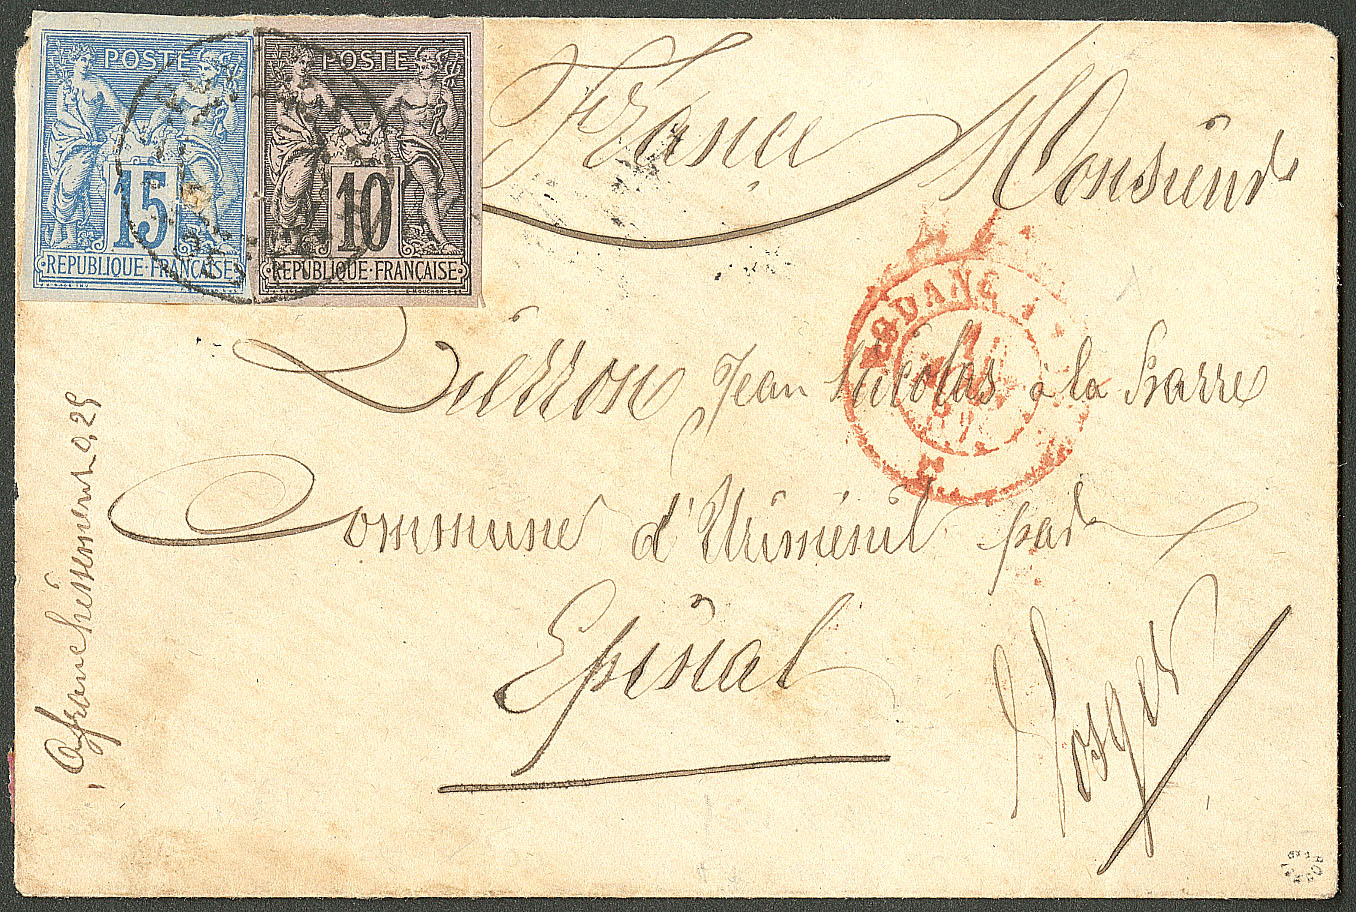 POSTE POSTE
15 10
REPUBLIQUE FRANÇAISE REPUBLIQUE FRANÇAISE
France Monsieur
Pierron Jean Nicolas à la Barre
Commune d'Uriménil par
Epinal
Vosges
Affranchissement 0,25